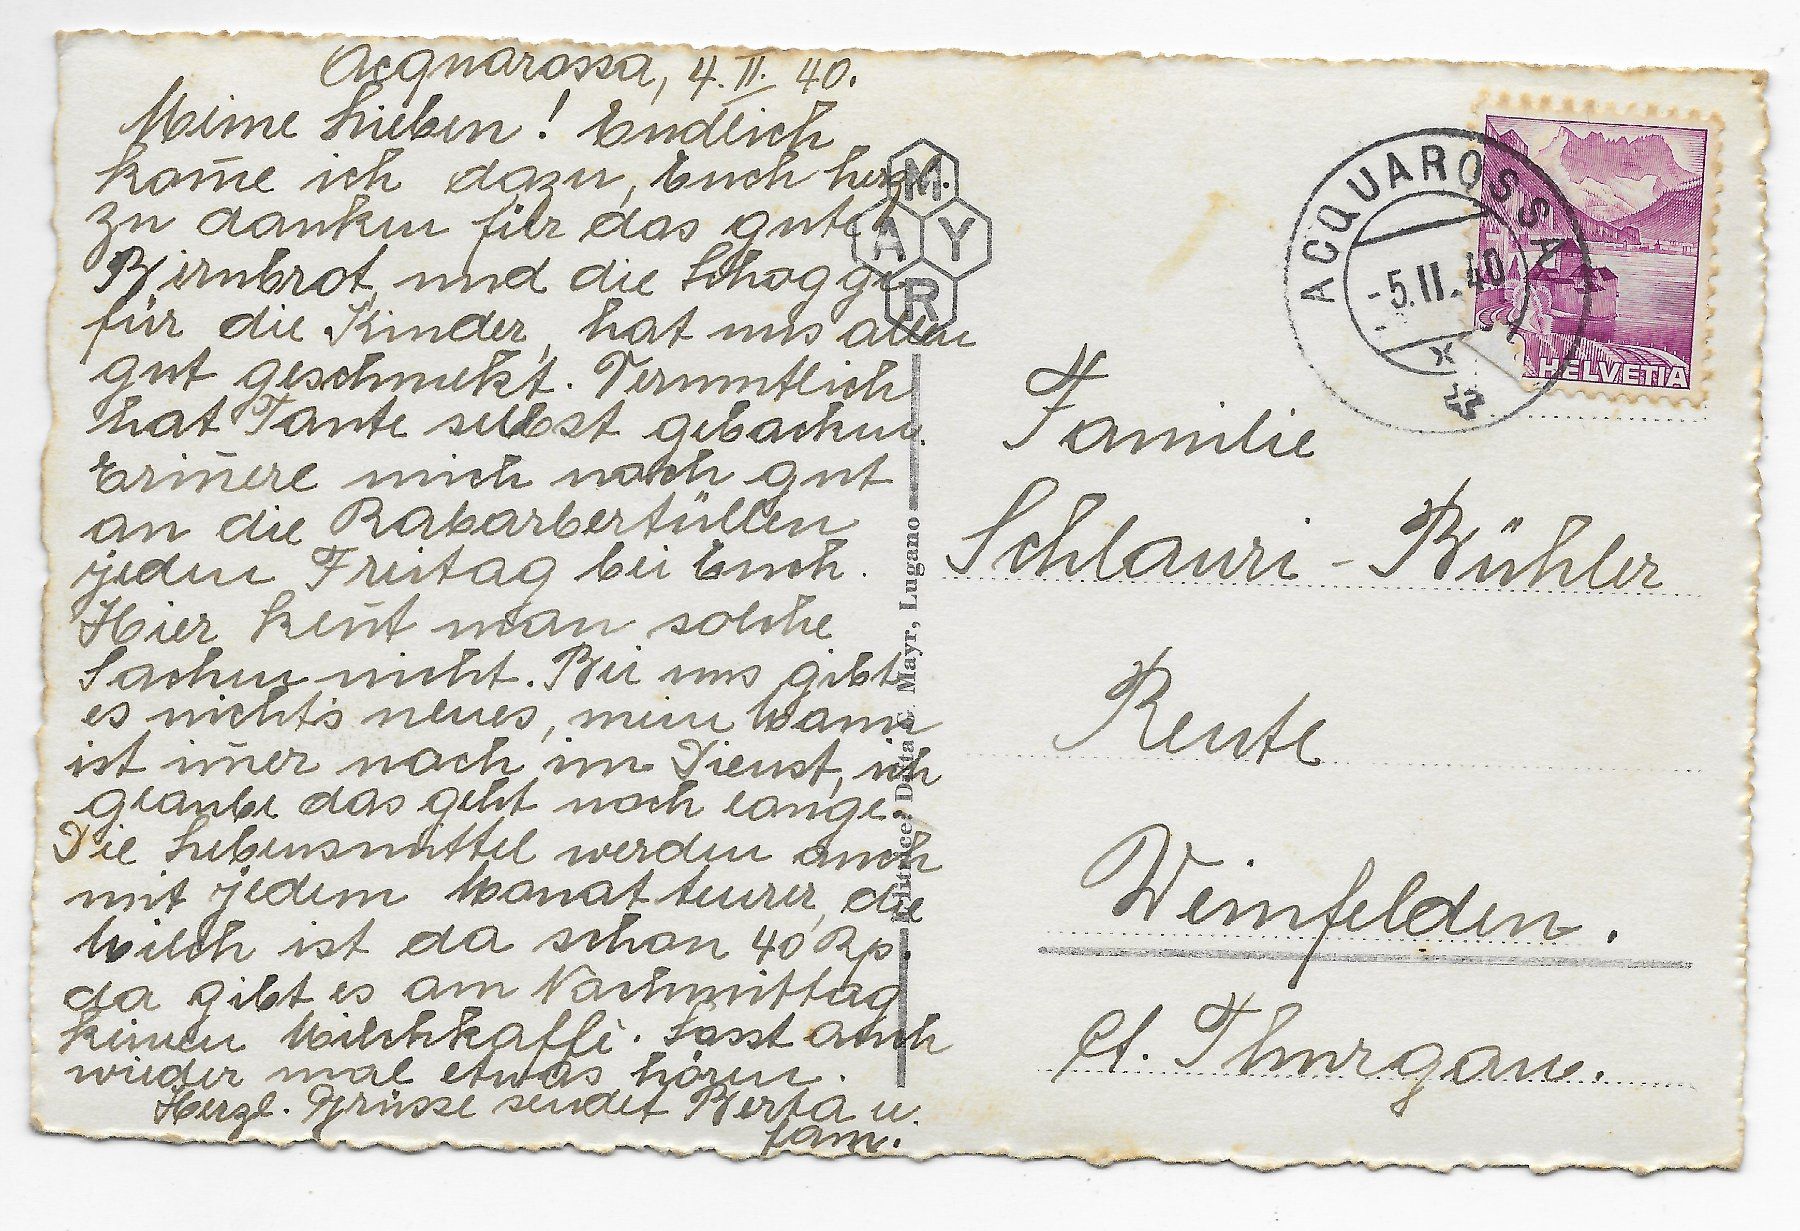 Acquarossa, 4. II. 40.
Meine Lieben! Endlich
kom̅e ich dazu, Euch herzl.
zu danken für das gute
Birnbrot und die Schoggi
für die Kinder, hat uns allen
gut geschmekt. Vermutlich
hat Tante selbst gebacken.
Erin̅ere mich noch gut
an die Rabarbertüllen
jeden Freitag bei Euch.
Hier ken̅t man solche
Sachen nicht. Bei uns gibt
es nichts neues, mein Mann
ist im̅er noch im Dienst, ich
glaube das geht noch lange.
Die Lebensmittel werden auch
mit jedem Monat teurer, die
Milch ist da schon 40 Rp.
da gibt es am Nachmittag
keinen Milchkaffe. Lasst auch
wieder mal etwas hören.
Herzl. Grüsse sendet Berta u.
Fam.
M
A Y
R
Editrice: Ditta G. Mayr, Lugano
ACQUAROSSA
-5.II.40
X
HELVETIA
Familie
Schlauri-Bühler
Reute
Weinfelden.
Ct. Thurgau.